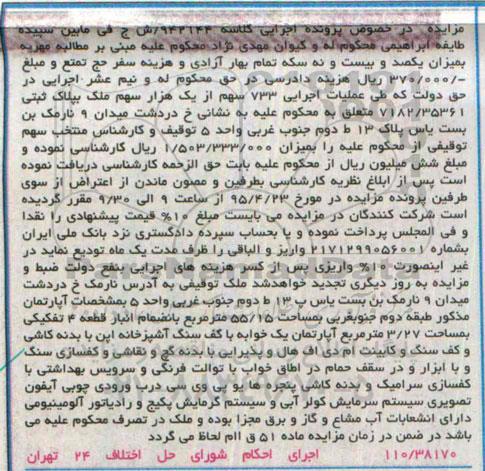 مزایده در خصوص پرونده اجرایی کلاسه ۹۴۳۱۴۴/ش ح فی مابین سپیده
طایفه ابراهیمی محکوم له و کیوان مهدی نژاد محکوم علیه مبنی بر مطالبه مهریه
بمیزان یکصد و بیست و نه سکه تمام بهار آزادی و هزینه سفر حج تمتع و مبلغ
۳۷۰/۰۰۰/- ریال هزینه دادرسی در حق محکوم له و نیم عشر اجرایی در
حق دولت که طی عملیات اجرایی ۷۳۳ سهم از یک هزار سهم ملک بپلاک ثبتی
۷۱۸۲/۳۵۳۶۱ متعلق به محکوم علیه به نشانی خ دردشت میدان ۹ نارمک بن
بست یاس پلاک ۱۳ ط دوم جنوب غربی واحد ۵ توقیف و کارشناس منتخب سهم
توقیفی از محکوم علیه را بمیزان ۱/۵۰۳/۳۳۳/۰۰۰ ریال کارشناسی نموده و
مبلغ شش میلیون ریال از محکوم علیه بابت حق الزحمه کارشناسی دریافت نموده
است پس از ابلاغ نظریه کارشناسی بطرفین و مصون ماندن از اعتراض از سوی
طرفین پرونده مزایده در مورخ ۹۵/۴/۲۳ از ساعت ۹ الی ۹/۳۰ مقرر گردیده
است شرکت کنندگان در مزایده می بایست مبلغ ۱۰% قیمت پیشنهادی را نقدا
و فی المجلس پرداخت نموده و یا بحساب سپرده دادگستری نزد بانک ملی ایران
بشماره ۲۱۷۱۲۹۹۰۵۶۰۰۱ واریز و الباقی را ظرف مدت یک ماه تودیع نماید در
غیر اینصورت ۱۰% واریزی پس از کسر هزینه های اجرایی بنفع دولت ضبط و
مزایده به روز دیگری تجدید خواهدشد ملک توقیفی به آدرس نارمک خ دردشت
میدان ۹ نارمک بن بست یاس پ ۱۳ ط دوم جنوب غربی واحد ۵ بمشخصات آپارتمان
مذکور طبقه دوم جنوبغربی بمساحت ۵۵/۱۵ مترمربع بانضمام انبار قطعه ۴ تفکیکی
بمساحت ۳/۲۷ مترمربع آپارتمان یک خوابه با کف سنگ آشپزخانه اپن با بدنه کاشی
و کف سنگ و کابینت ام دی اف هال و پذیرایی با بدنه گچ و نقاشی و کفسازی سنگ
و با ابزار و در سقف حمام در اطاق خواب با توالت فرنگی و سرویس بهداشتی با
کفسازی سرامیک و بدنه کاشی پنجره ها یو پی وی سی درب ورودی چوبی آیفون
تصویری سیستم سرمایش کولر آبی و سیستم گرمایش پکیج و رادیاتور آلومینیومی
دارای انشعابات آب مشاع و گاز و برق مجزا بوده و ملک در تصرف محکوم علیه می
باشد در ضمن در زمان مزایده ماده ۵۱ ق اام لحاظ می گردد
۱۱۰/۳۸۱۷۰ اجرای احکام شورای حل اختلاف ۲۴ تهران